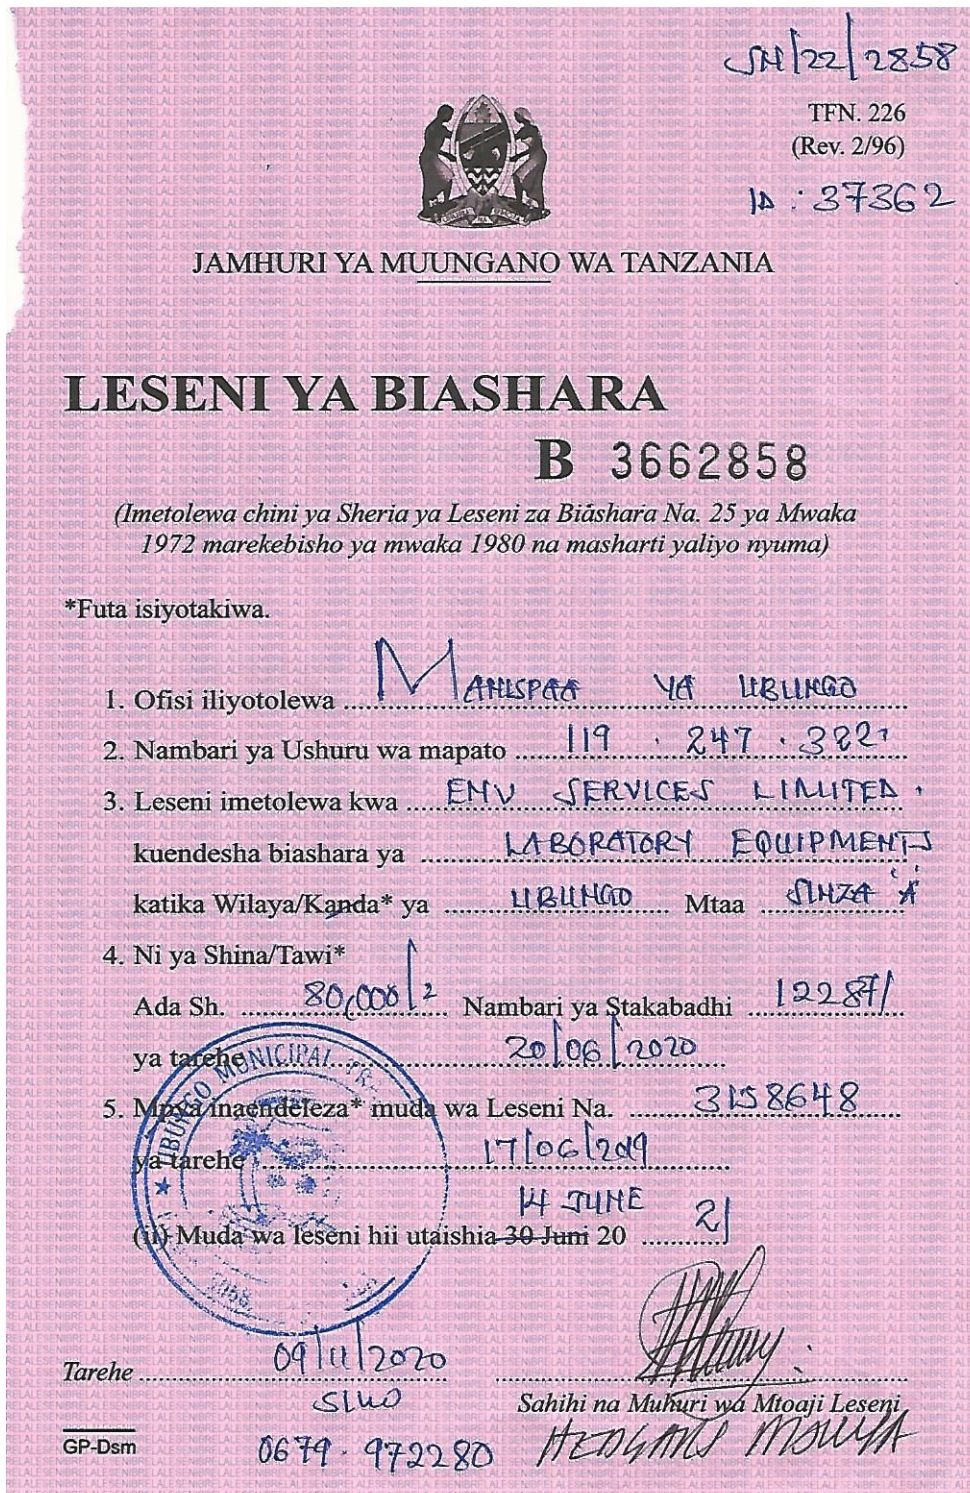 SH/22/2858
TFN. 226
(Rev. 2/96)
ID : 37362
JAMHURI YA MUUNGANO WA TANZANIA
LESENI YA BIASHARA
B 3662858
(Imetolewa chini ya Sheria ya Leseni za Biashara Na. 25 ya Mwaka
1972 marekebisho ya mwaka 1980 na masharti yaliyo nyuma)
*Futa isiyotakiwa.
1. Ofisi iliyotolewa MANISPAA YA UBUNGO
2. Nambari ya Ushuru wa mapato 119 . 247 . 322
3. Leseni imetolewa kwa ENV SERVICES LIMITED .
kuendesha biashara ya LABORATORY EQUIPMENTS
katika Wilaya/Kanda* ya UBUNGO Mtaa SINZA 'A'
4. Ni ya Shina/Tawi*
Ada Sh. 80,000/2 Nambari ya Stakabadhi 122871
ya tarehe 20/06/2020
5. Mpya inaendeleza* muda wa Leseni Na. 3158648
ya tarehe 17/06/2019
14 JUNE
(ii) Muda wa leseni hii utaishia 30 Juni 20 21
UBUNGO MUNICIPAL
Tarehe 09/11/2020
Sahihi na Muhuri wa Mtoaji Leseni
GP-Dsm
0679 . 972280